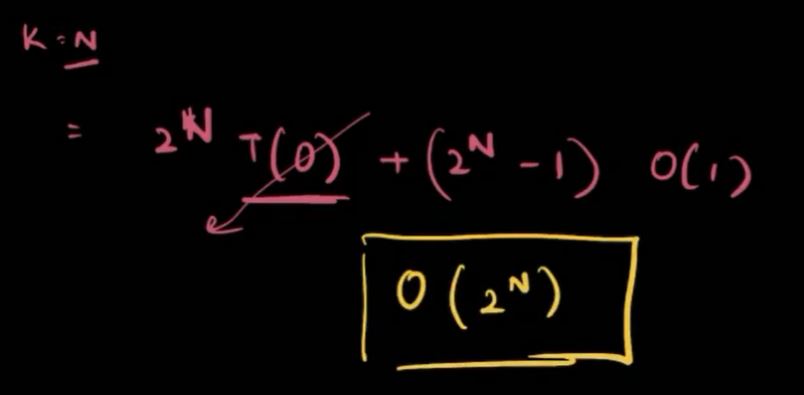 K = N
= 2^N T(0) + (2^N - 1) O(1)
O(2^N)